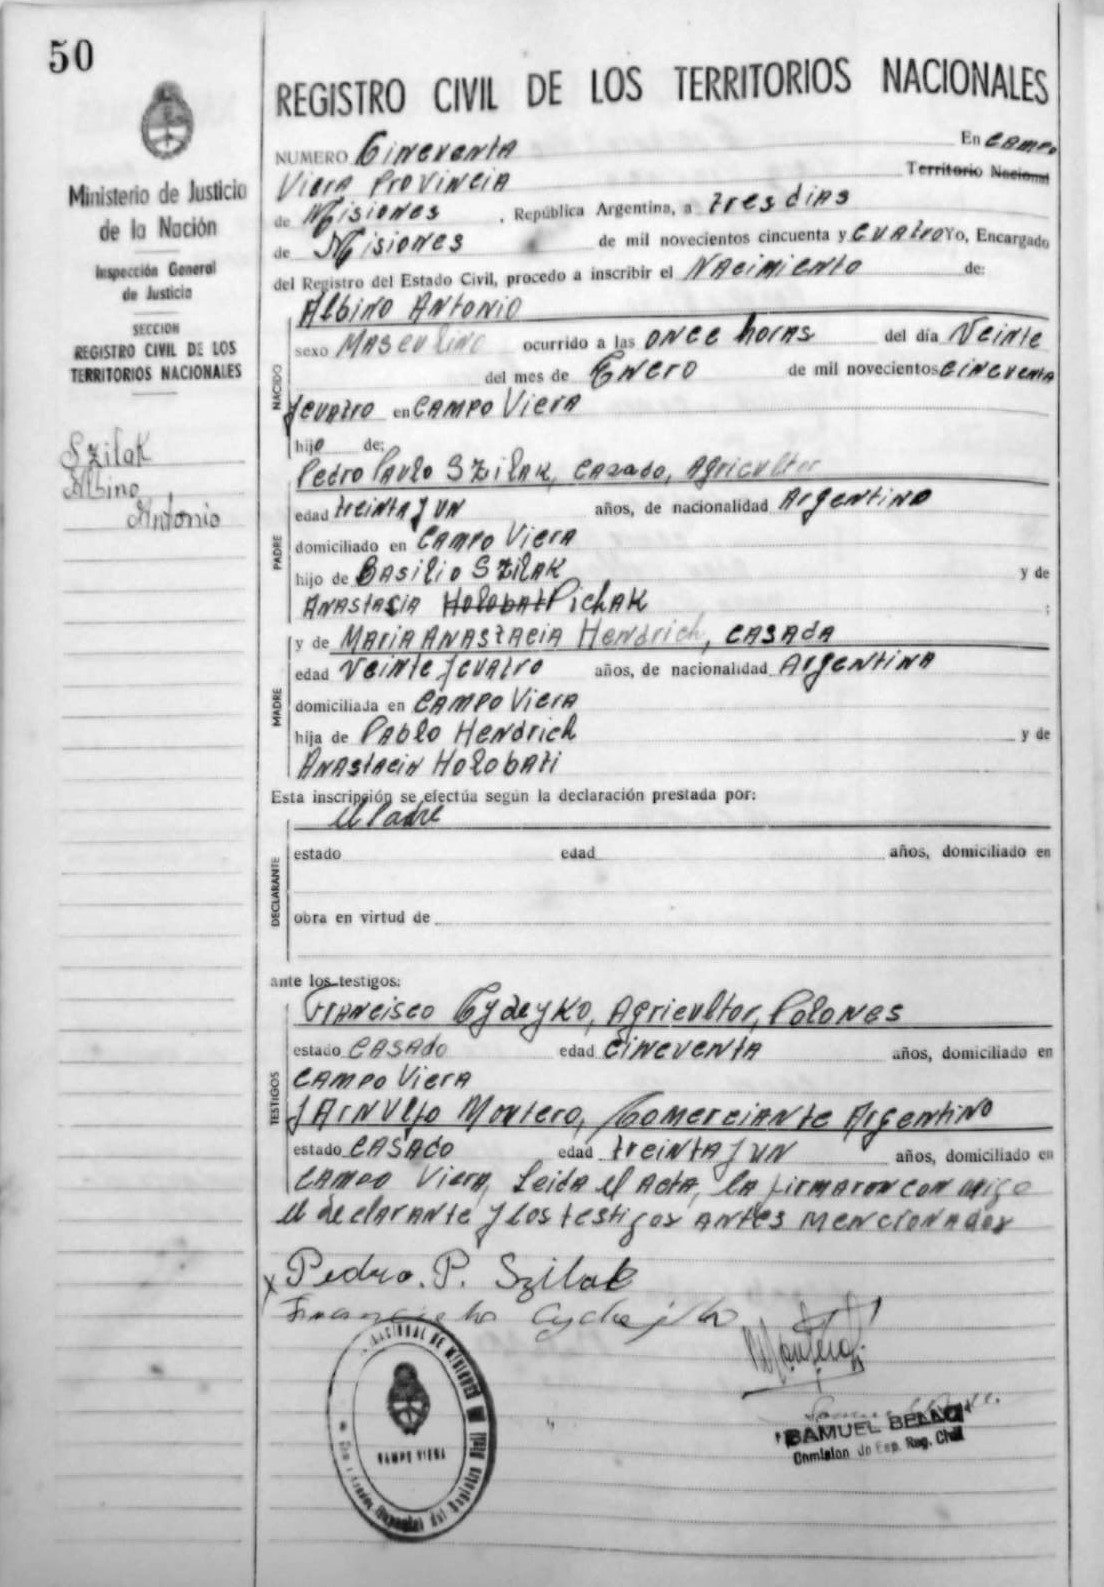 50
REGISTRO CIVIL DE LOS TERRITORIOS NACIONALES
Ministerio de Justicia
de la Nación
Inspección General
de Justicia
SECCION
REGISTRO CIVIL DE LOS
TERRITORIOS NACIONALES
Szilak
Albino
Antonio
NUMERO Cincuenta En Campo
Viera Provincia Territorio Nacional
de Misiones , República Argentina, a tres dias
de Misiones de mil novecientos cincuenta y cuatro Yo, Encargado
del Registro del Estado Civil, procedo a inscribir el Nacimiento de:
NACIDO
Albino Antonio
sexo Masculino ocurrido a las once horas del día Veinte
del mes de Enero de mil novecientos cincuenta
y cuatro en Campo Viera
hijo de:
PADRE
Pedro Paulo Szilak, casado, Agricultor
edad treinta y un años, de nacionalidad Argentino
domiciliado en Campo Viera
hijo de Basilio Szilak y de
Anastacia Holobati Pichak ;
MADRE
y de Maria Anastacia Hendrich, casada
edad Veinte y cuatro años, de nacionalidad Argentina
domiciliada en Campo Viera
hija de Pablo Hendrich y de
Anastacia Holobati
Esta inscripción se efectúa según la declaración prestada por:
DECLARANTE
el Padre
estado edad años, domiciliado en
obra en virtud de
ante los testigos:
TESTIGOS
Francisco Cydeyko, Agricultor, Polones
estado casado edad cincuenta años, domiciliado en
Campo Viera
y Arnulfo Montero, Comerciante Argentino
estado casado edad treinta y un años, domiciliado en
Campo Viera, Leida el acta, la firmaron conmigo
el declarante y los testigos antes mencionados
x Pedro. P. Szilak
Montero
CAMPO VIERA
SAMUEL BELLO
Comision de Esp. Reg. Civil